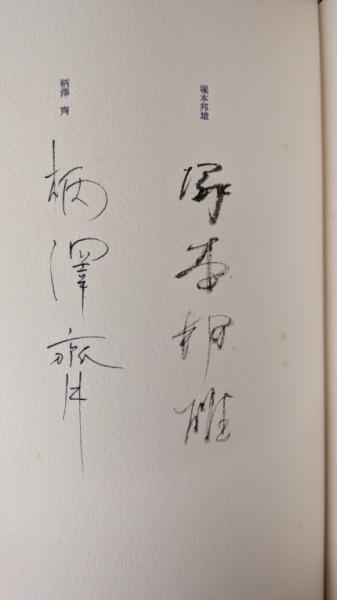 塚本邦雄
塚本邦雄
柄澤 齊
柄澤齊